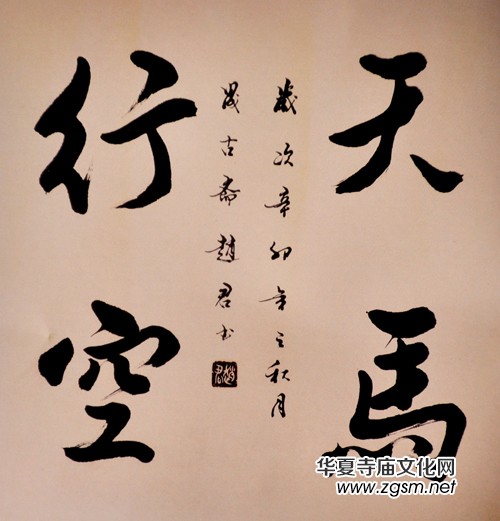 天馬
行空
歲次辛卯年之秋月
晟古斋趙君书
趙君
华夏寺庙文化网
www.zgsm.net